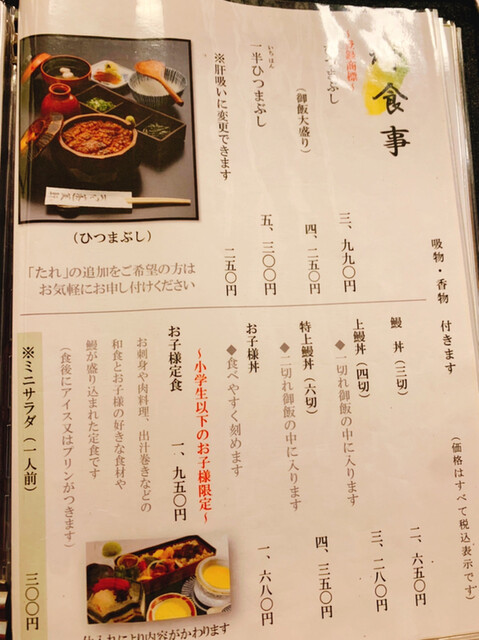 御食事
吸物・香物 付きます
(価格はすべて税込表示です)
～登録商標～
ひつまぶし 三、九九〇円
(御飯大盛り) 四、二五〇円
いちはん
一半ひつまぶし 五、三〇〇円
※肝吸いに変更できます 二五〇円
(ひつまぶし)
「たれ」の追加をご希望の方は
お気軽にお申し付けください
鰻丼(三切) 二、六五〇円
上鰻丼(四切) 三、二八〇円
◆一切れ御飯の中に入ります
特上鰻丼(六切) 四、三五〇円
◆二切れ御飯の中に入ります
お子様丼 一、六八〇円
◆食べやすく刻めます
～小学生以下のお子様限定～
お子様定食 一、九五〇円
お刺身や肉料理、出汁巻きなどの
和食とお子様の好きな食材や
鰻が盛り込まれた定食です
(食後にアイス又はプリンがつきます)
※ミニサラダ(一人前) 三〇〇円
仕入れにより内容がかわります